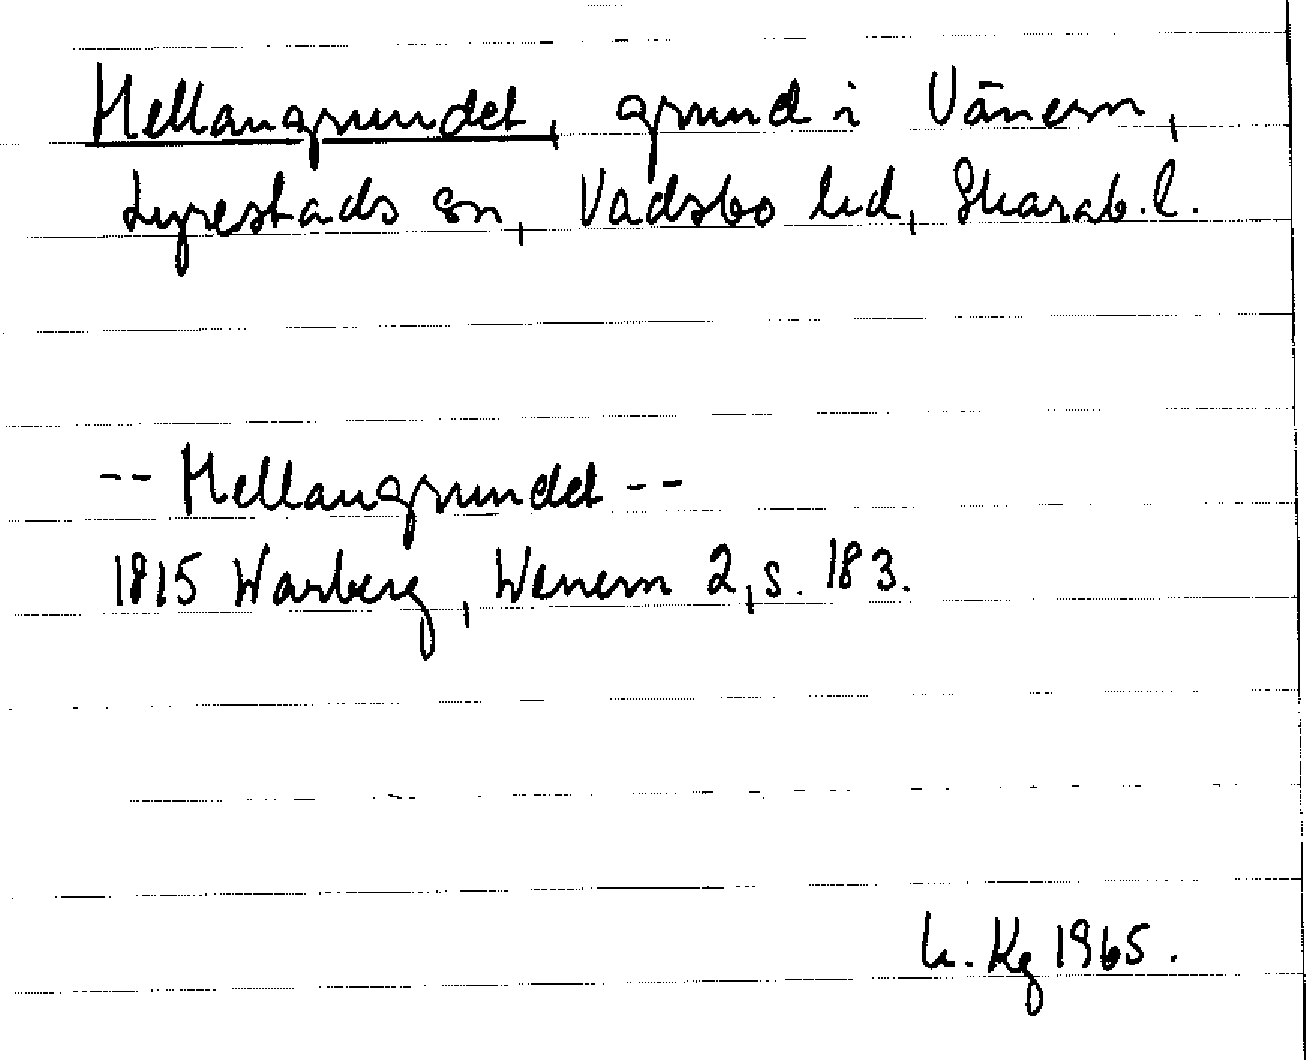 Mellangrundet, grund i Vänern,
Lyrestads sn, Vadsbo hd, Skarab. l.
-- Mellangrundet --
1815 Warberg, Wenern 2, s. 183.
L. Kg 1965.